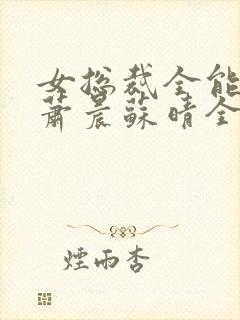 女总裁全能
萧晨蘇晴全
煙雨杏